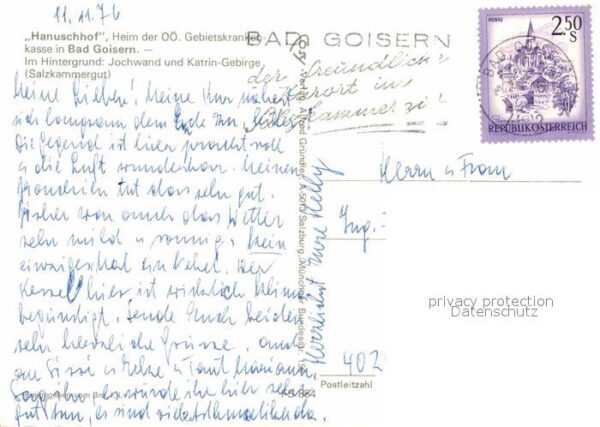 11.11.76
„Hanuschhof“, Heim der OÖ. Gebietskranken-
kasse in Bad Goisern. —
Im Hintergrund: Jochwand und Katrin-Gebirge
(Salzkammergut)
Meine Lieben! Meine Kur nähert
sich langsam dem Ende zu.
Die Gegend ist hier prachtvoll
u die Luft wunderbar. Meinen
tut das sehr gut.
Bisher war auch das Wetter
sehr mild u sonnig, kein
einziges mal ein Nebel. Der
Kessel hier ist wirklich klima
begünstigt. Sende Euch beiden
sehr herzliche Grüsse, auch
an Sissi u Tant Mariann.
Sag ihr, es würde ihr hier sehr
gut tun, es sind
Herzlichst Eure Helly
Österr. Verlag Alfred Gründler, A-5010 Salzburg, Münchner Bundesstr.
FS 884
BAD GOISERN
der freundliche
Kurort im
Salzkammergut
MURAU
2.50
S
REPUBLIK ÖSTERREICH
BAD GOISERN
Herrn u Frau
Ing.
402
Postleitzahl
privacy protection
Datenschutz